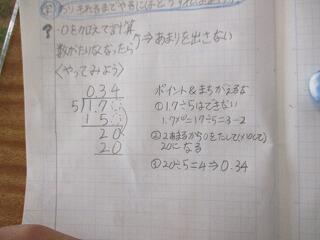 わりきれるまでやるには
? ・0を加えて計算
数がたりなくなったら
⇒あまりを出さない
〈やってみよう〉
0.34
5)1.7
15
20
20
ポイント&まちがえるな
①1.7÷5はできない
1.7×10=17÷5=3-2
②2あまるから0をたして(×10して)
20になる
③20÷5=4⇒0.34